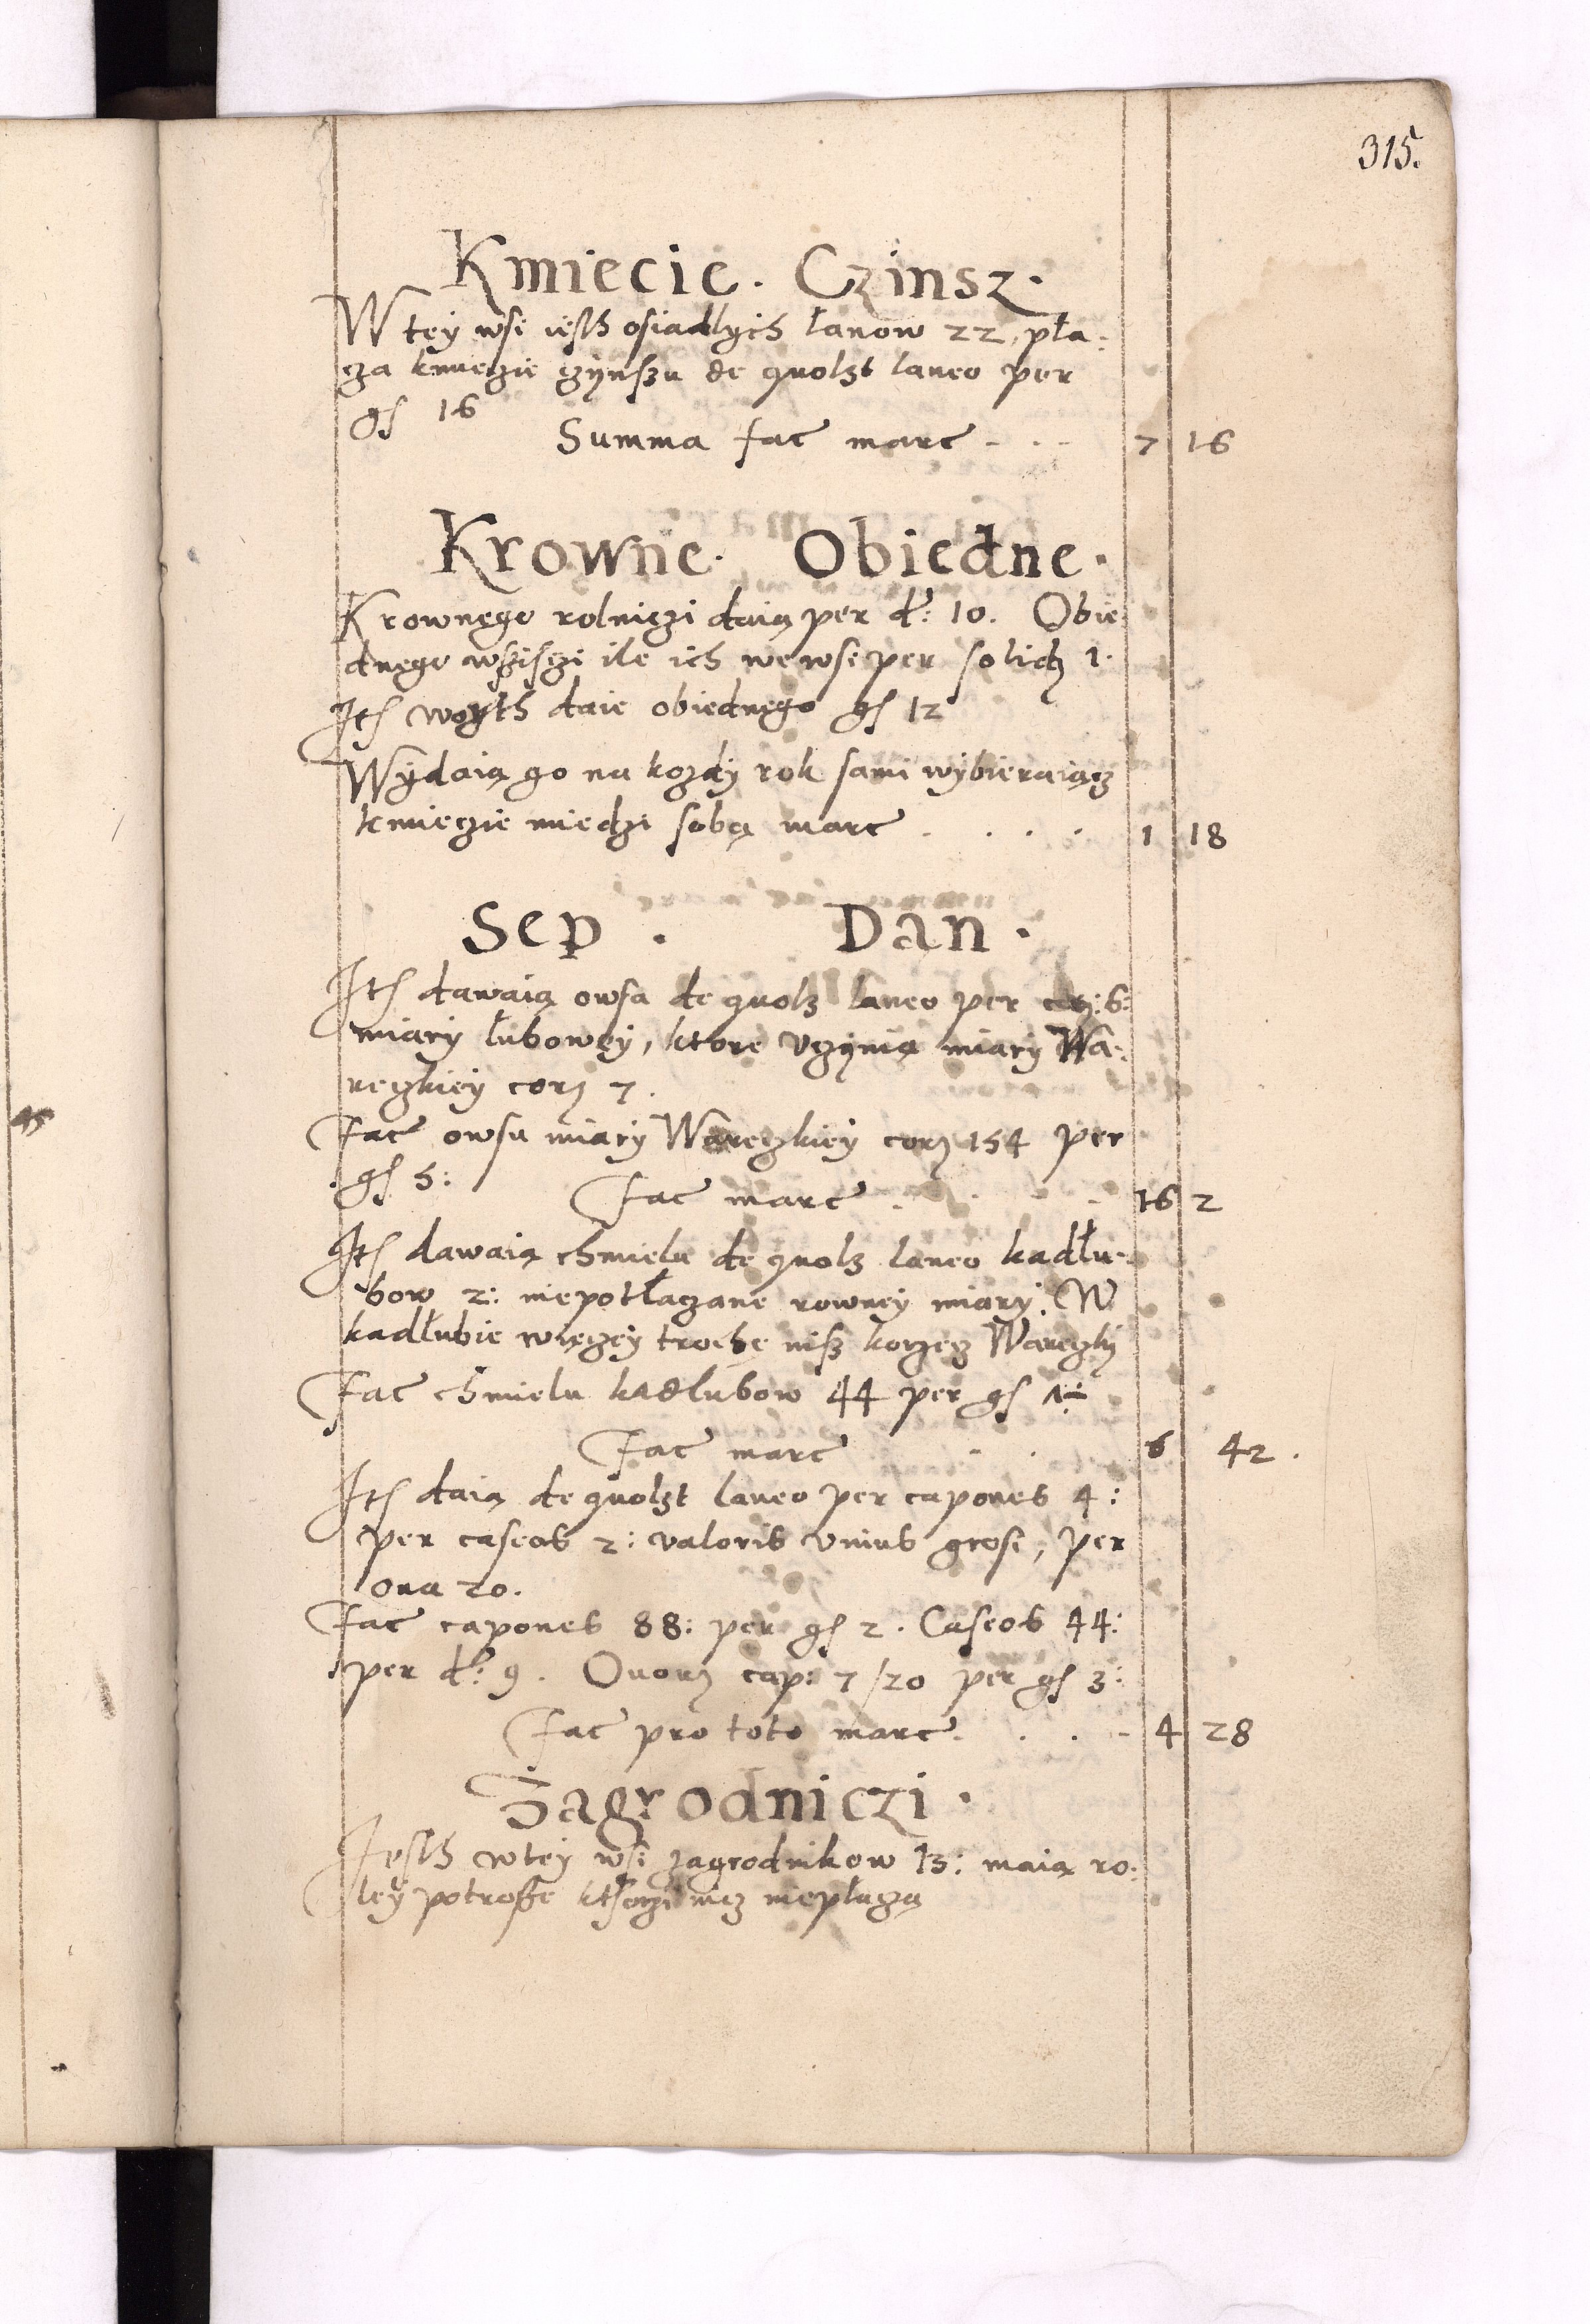 315.
Kmiecie. Czinsz.
W tey wsi iesth osiadlych łanow 22, pła-
cza kmiecie czynszu de quolzt laneo per
gs 16
Summa fac marc - . . - 7 16
Krowne. Obiedne.
Krownego rolniczi daią per d: 10. Obie:
dnego wszisczi ile ich we wsi per solidz 1.
Its woyth daie obiednego gs 12
Wydaią go na kozdy rok sami wybieraiącz
kmiecie miedzi sobą marc . . . . 1 18
Sep . Dan .
Its dawaią owsa de quolz laneo per corz: 6:
miary łubowey, ktore vczynią miary Wa-
reczkiey corz 7.
Fac owsa miary Wareczkiey corz 154 per
gs 5:
Fac marc . . - - 16 2
Its dawaią chmielu de quolz laneo kadłu-
bow 2: niepotłaczane rowney miary. W
kadłubie więczey trochę nisz korzecz Wareczky
Fac chmielu kadlubow 44 per gs
Fac marc - . 6 42.
Its daią de quolzt laneo per capones 4:
per caseos 2: valoris vnius grosi, per
oua 20.
Fac capones 88: per gs 2. Caseos 44:
per d: 9. Ouorz cap: 7/20 per gs 3:
Fac pro toto marc . . . - 4 28
Zagrodniczi .
Iesth wtey wsi zagrodnikow 13: maią ro-
ley potrosze niepłaczą
45